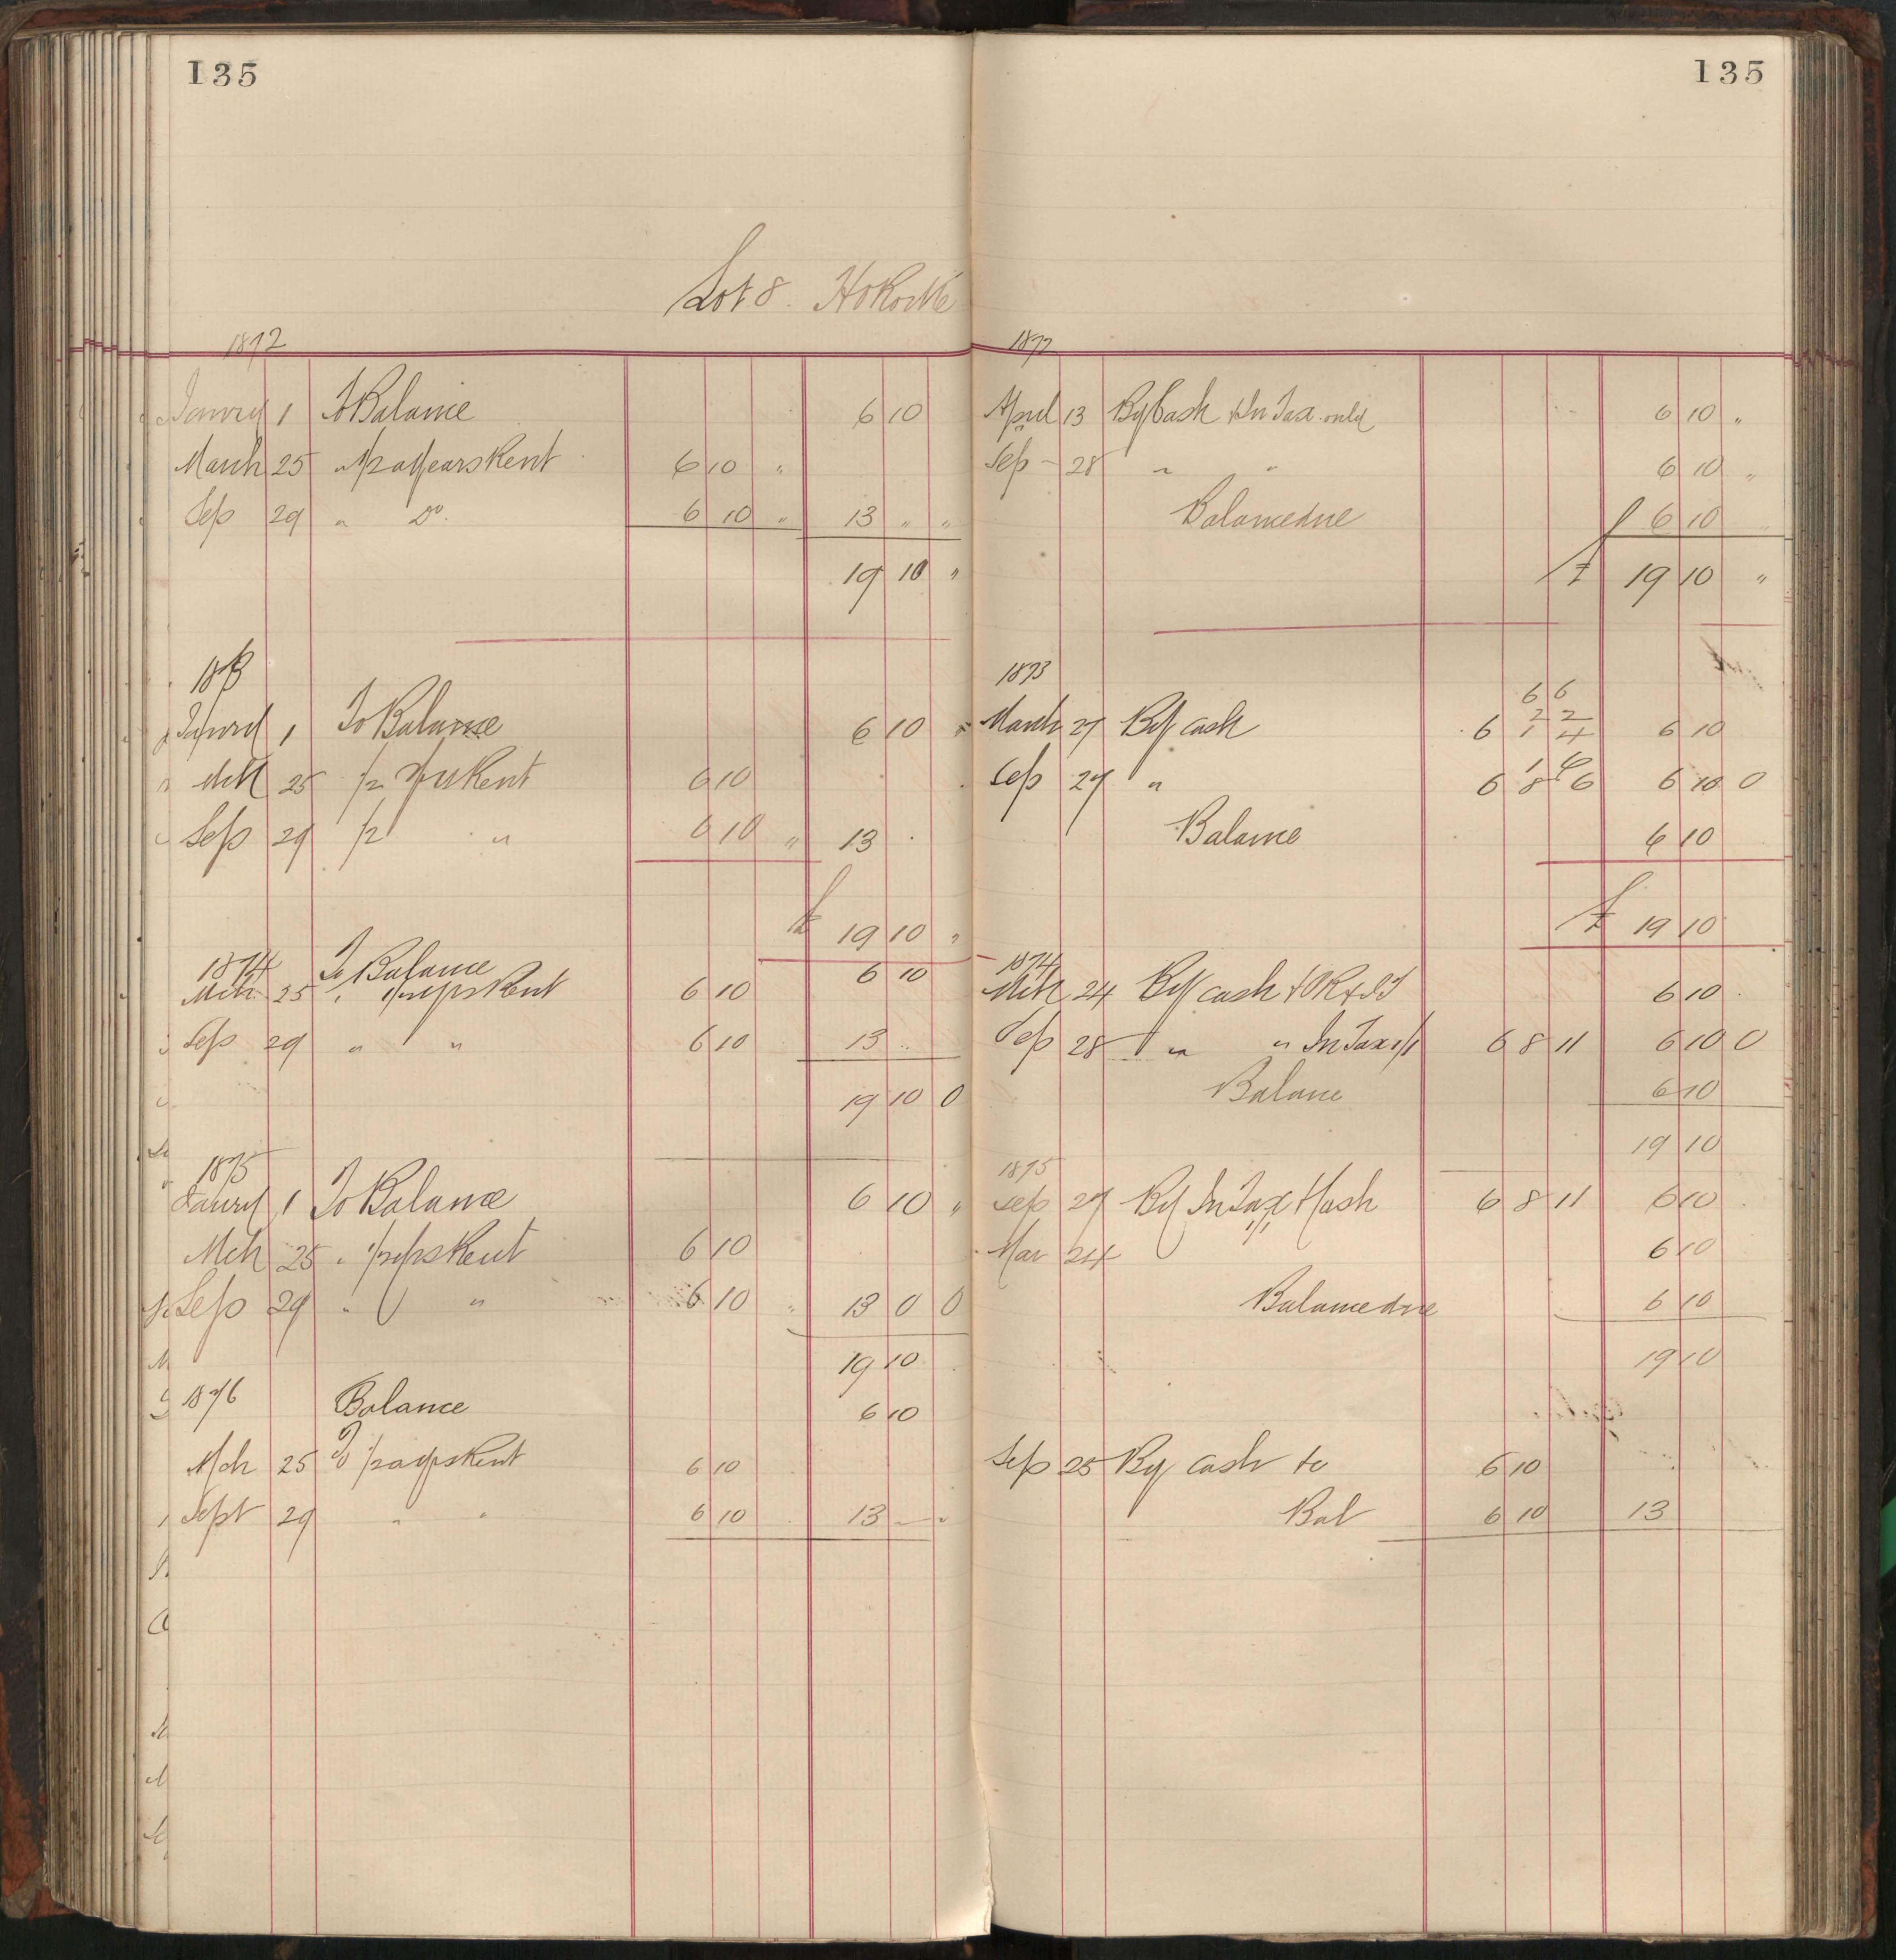 135
135
Lot 8.
1872
Janury 1 To Balance 6 10
March 25 " 1/2 a years Rent 6 10 "
Sep 29 " Do. 6 10 " 13 " "
19 10 "
1873
Janury 1 To Balance 6 10 "
Mch 25 1/2 yrs Rent 6 10
Sep 29 1/2 " 6 10 " 13
£ 19 10 "
1874 To Balance 6 10
Mch 25 " 1/2 yrs Rent 6 10
Sep 29 " " 6 10 13
19 10 0
1875
Janury 1 To Balance 6 10 "
Mch 25 " 1/2 yrs Rent 6 10
Sep 29 " " 6 10 " 13 0 0
19 10
1876 Balance 6 10
Mch 25 To 1/2 a yrs Rent 6 10
Sept 29 " " 6 10 13 " "
1872
April 13 By Cash & In Tax only 6 10 "
Sep 28 " " 6 10 "
Balance due 6 10 "
£ 19 10 "
1873
March 27 By cash 6 6 10
Sep 27 " 6 8 6 6 10 0
Balance 6 10
£ 19 10
1874
Mch 24 By cash 6 10
Sep 28 " " In Tax 1/1 6 8 11 6 10 0
Balance 6 10
19 10
1875
Sep 27 By In Tax & Cash 6 8 11 6 10
1/1
Mar 24 6 10
Balance due 6 10
19 10
Sep 25 By cash to 6 10
Bal 6 10 13